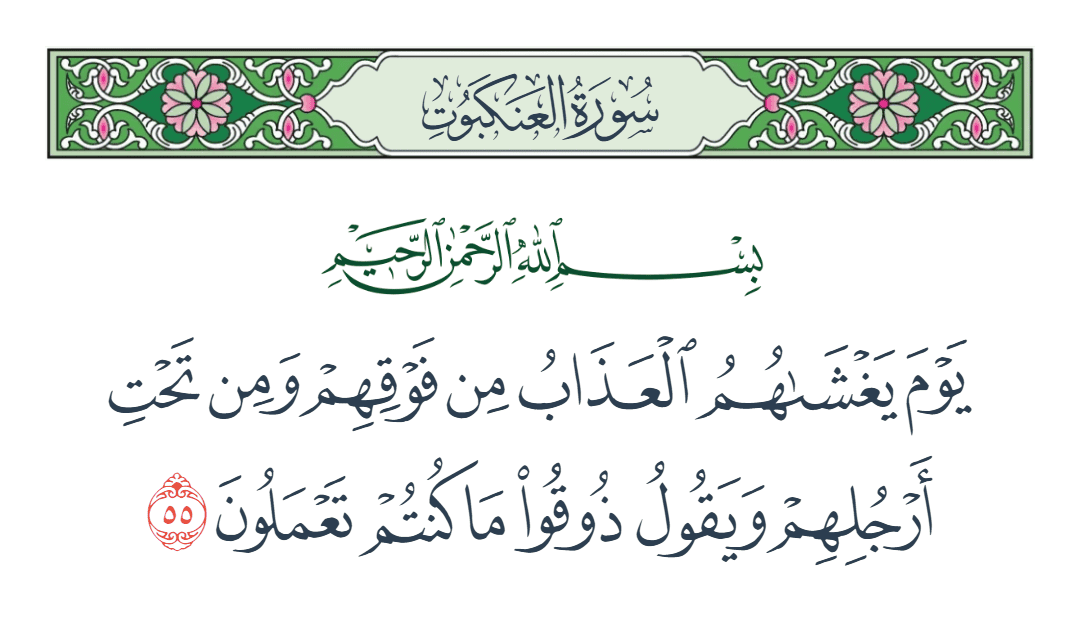 سُورَةُ العَنكَبُوتِ
بِسْمِ ٱللَّهِ ٱلرَّحْمَٰنِ ٱلرَّحِيمِ
يَوْمَ يَغْشَىٰهُمُ ٱلْعَذَابُ مِن فَوْقِهِمْ وَمِن تَحْتِ
أَرْجُلِهِمْ وَيَقُولُ ذُوقُوا۟ مَا كُنتُمْ تَعْمَلُونَ ٥٥